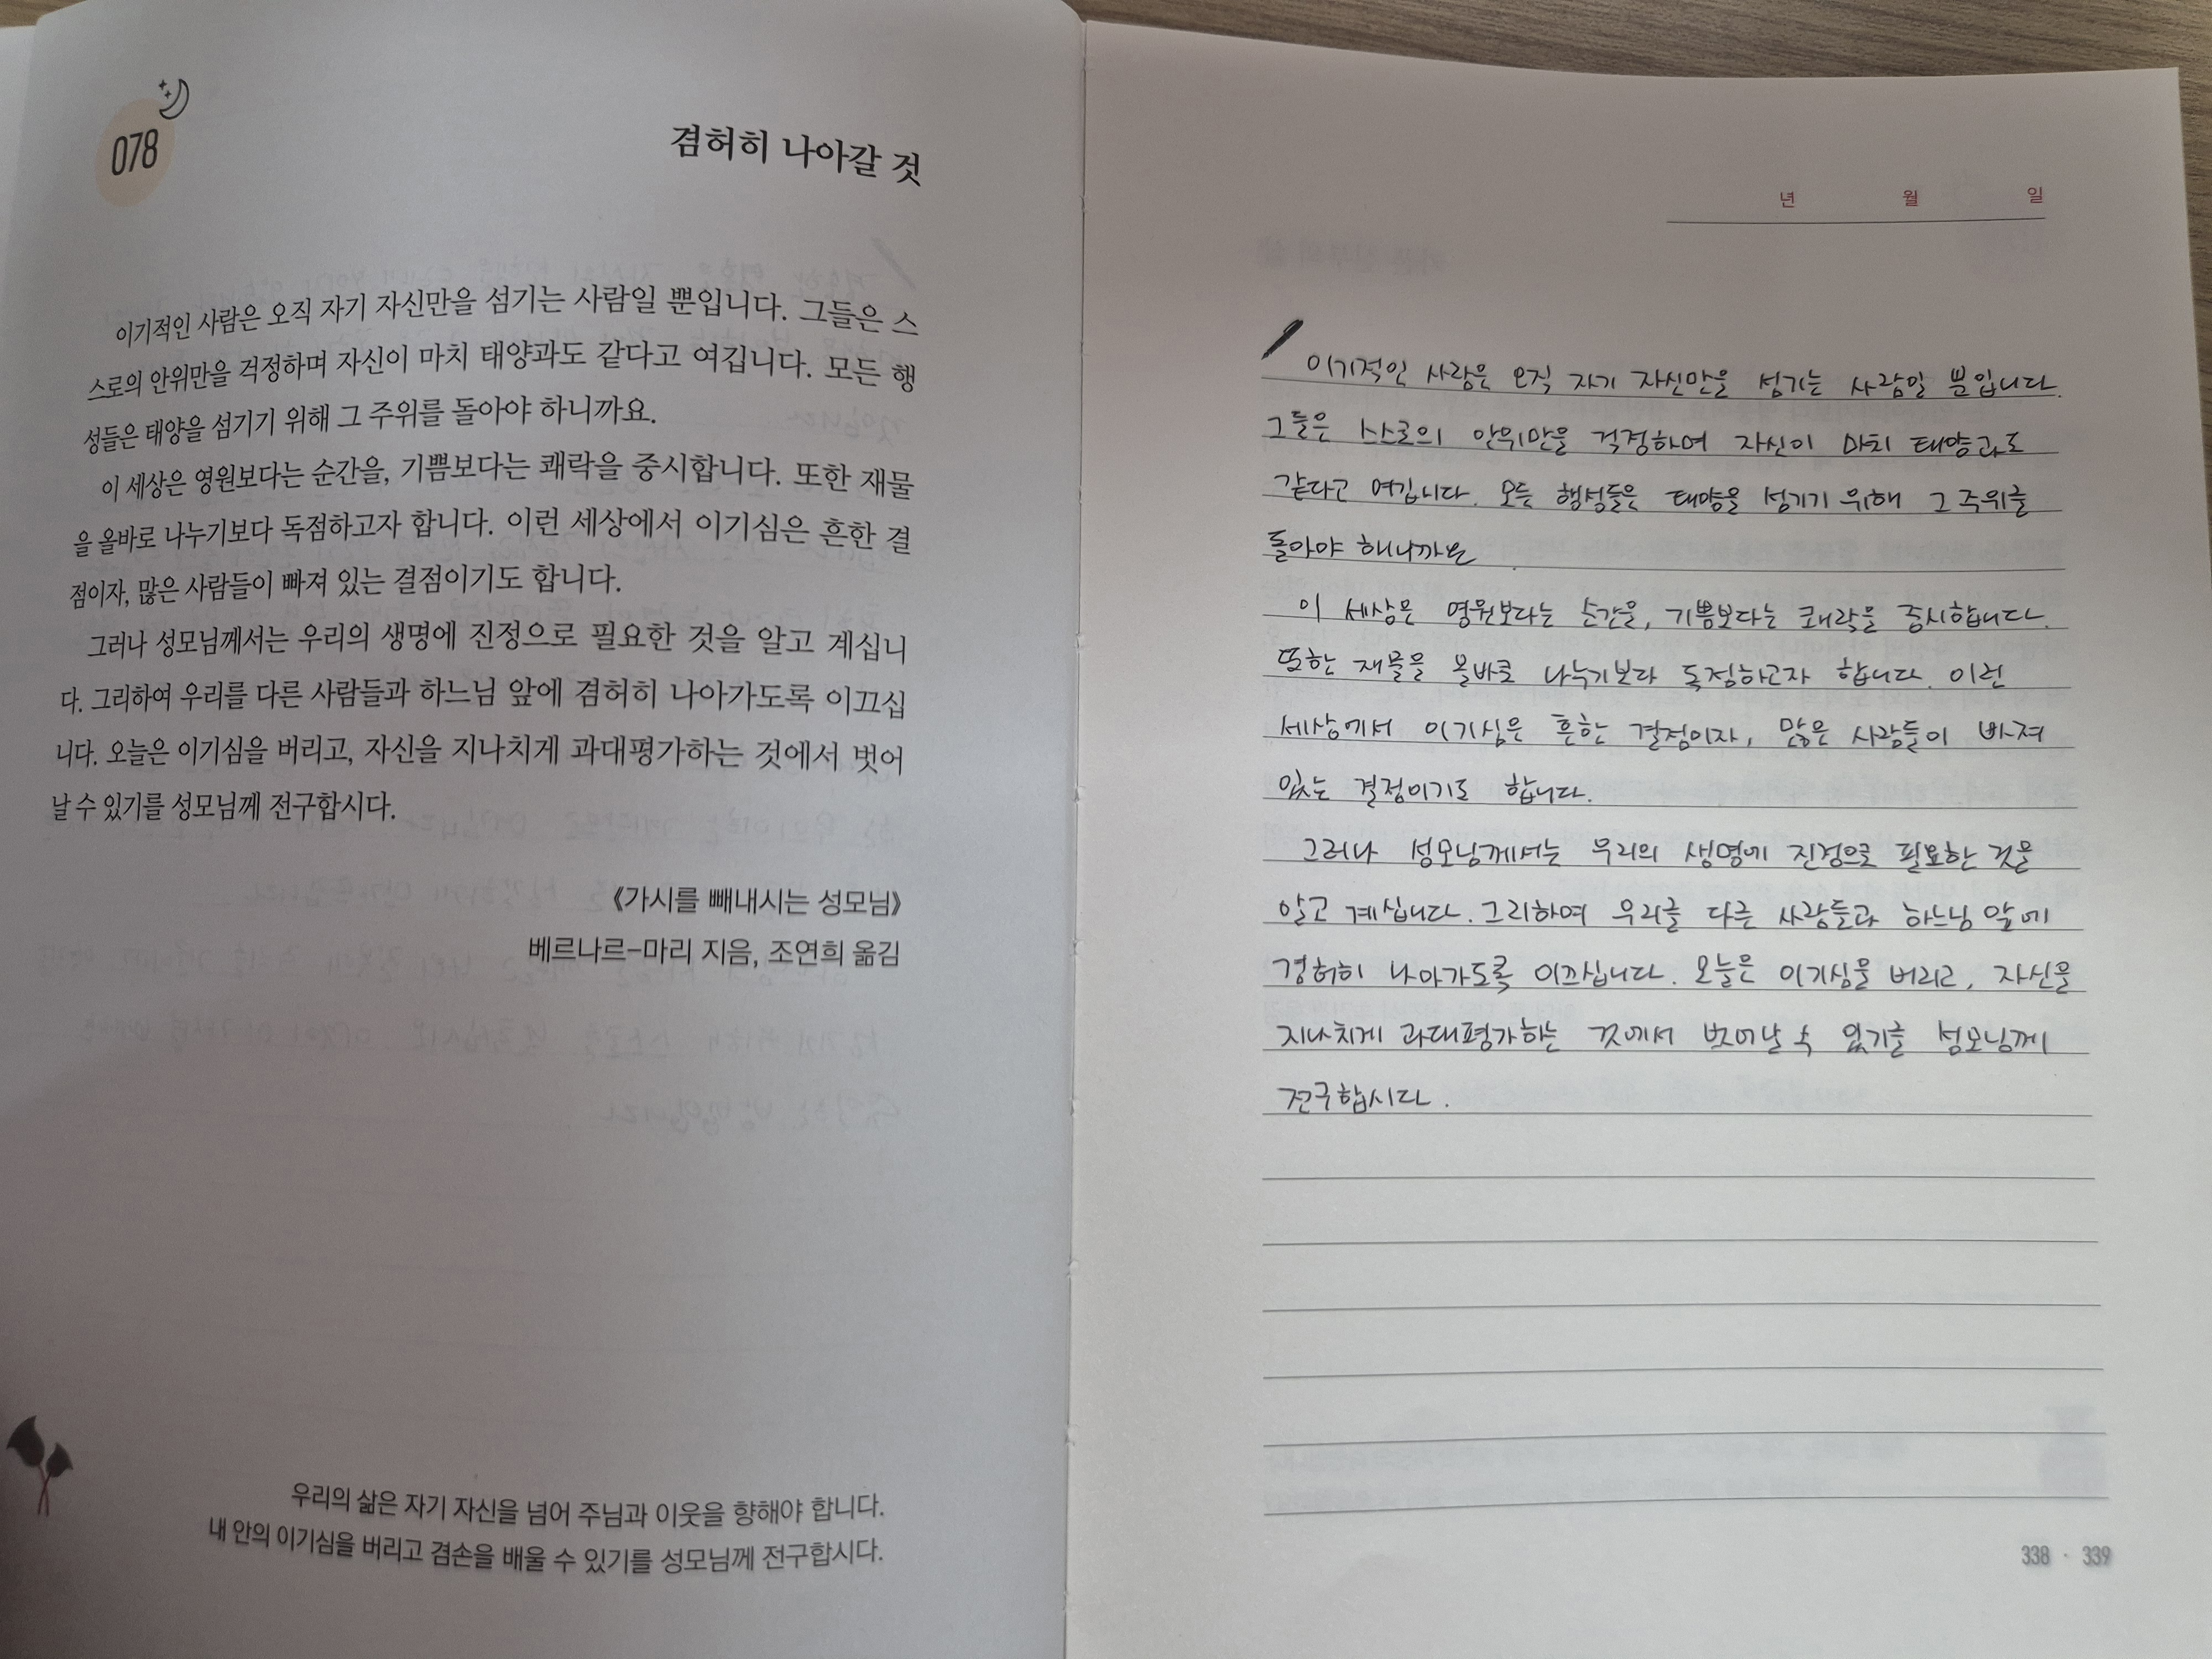 078
겸허히 나아갈 것
이기적인 사람은 오직 자기 자신만을 섬기는 사람일 뿐입니다. 그들은 스
스로의 안위만을 걱정하며 자신이 마치 태양과도 같다고 여깁니다. 모든 행
성들은 태양을 섬기기 위해 그 주위를 돌아야 하니까요.
이 세상은 영원보다는 순간을, 기쁨보다는 쾌락을 중시합니다. 또한 재물
을 올바로 나누기보다 독점하고자 합니다. 이런 세상에서 이기심은 흔한 결
점이자, 많은 사람들이 빠져 있는 결점이기도 합니다.
그러나 성모님께서는 우리의 생명에 진정으로 필요한 것을 알고 계십니
다. 그리하여 우리를 다른 사람들과 하느님 앞에 겸허히 나아가도록 이끄십
니다. 오늘은 이기심을 버리고, 자신을 지나치게 과대평가하는 것에서 벗어
날 수 있기를 성모님께 전구합시다.
《가시를 빼내시는 성모님》
베르나르-마리 지음, 조연희 옮김
우리의 삶은 자기 자신을 넘어 주님과 이웃을 향해야 합니다.
내 안의 이기심을 버리고 겸손을 배울 수 있기를 성모님께 전구합시다.
년 월 일
이기적인 사람은 오직 자기 자신만을 섬기는 사람일 뿐입니다.
그들은 스스로의 안위만을 걱정하며 자신이 마치 태양과도
같다고 여깁니다. 모든 행성들은 태양을 섬기기 위해 그 주위를
돌아야 해니까요
이 세상은 영원보다는 순간을, 기쁨보다는 쾌락을 중시합니다.
또한 재물을 올바로 나누기보다 독점하고자 합니다. 이런
세상에서 이기심은 흔한 결점이자, 많은 사람들이 빠져
있는 결점이기도 합니다.
그러나 성모님께서는 우리의 생명에 진정으로 필요한 것을
알고 계십니다. 그리하여 우리를 다른 사람들과 하느님 앞에
겸허히 나아가도록 이끄십니다. 오늘은 이기심을 버리고, 자신을
지나치게 과대평가하는 것에서 벗어날 수 있기를 성모님께
전구합시다.
338 · 339